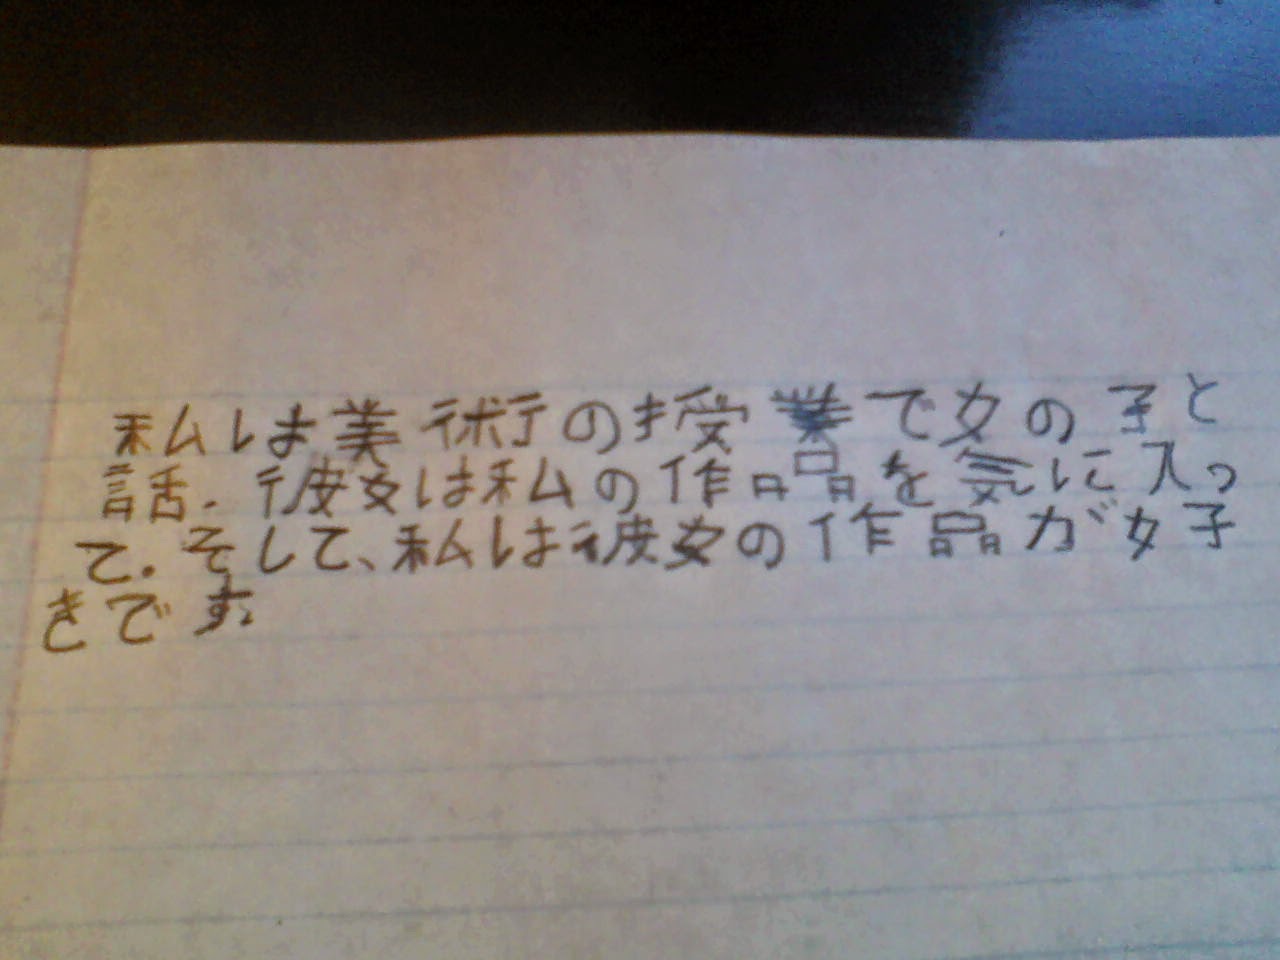 私は美術の授業で女の子と
話。彼女は私の作品を気に入っ
て。そして、私は彼女の作品が好
きです。